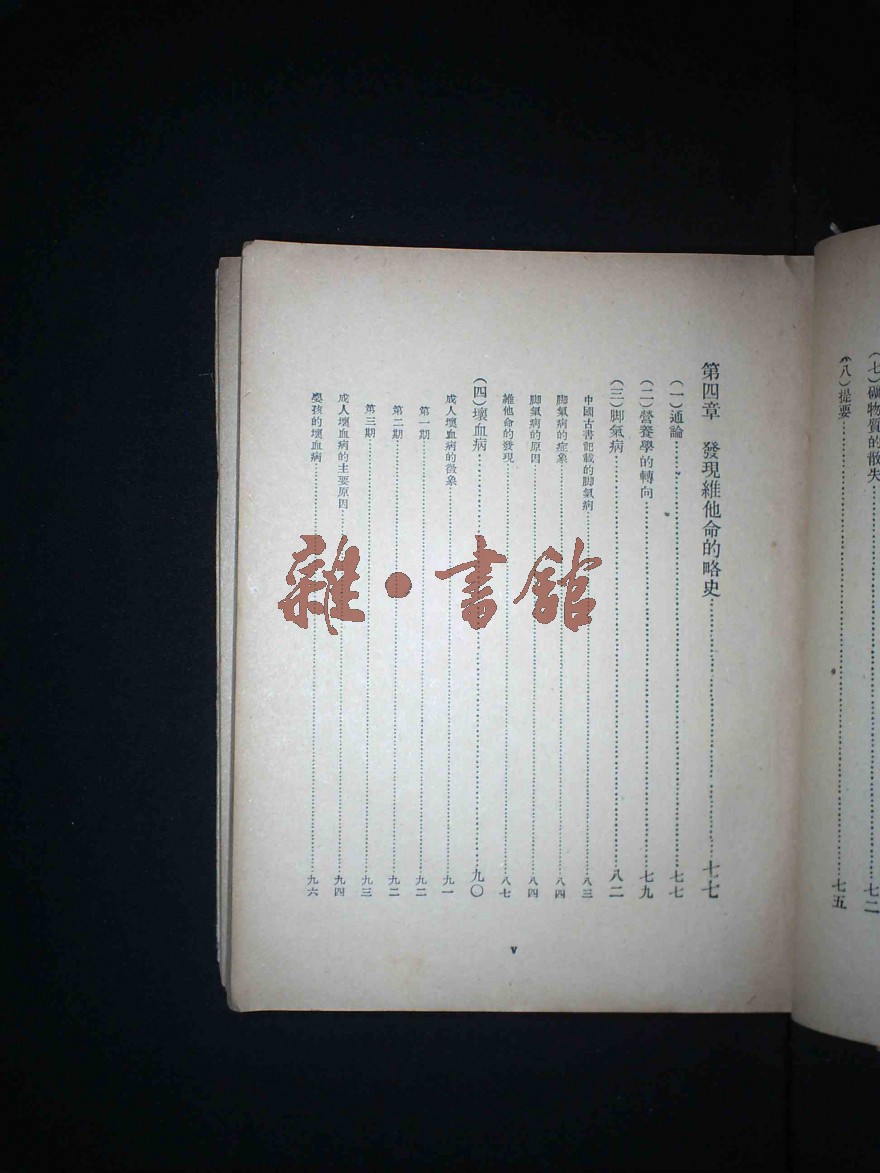 (七)礦物質的散失……七二
(八)提要……七五
第四章　發現維他命的略史……七七
(一)通論……七七
(二)營養學的轉向……七九
(三)脚氣病……八二
中國古書記載的脚氣病……八三
脚氣病的症象……八四
脚氣病的原因……八四
維他命的發現……八七
(四)壞血病……九〇
成人壞血病的徵象……九一
第一期……九二
第二期……九二
第三期……九三
成人壞血病的主要原因……九四
嬰孩的壞血病……九六
v
雜·書館